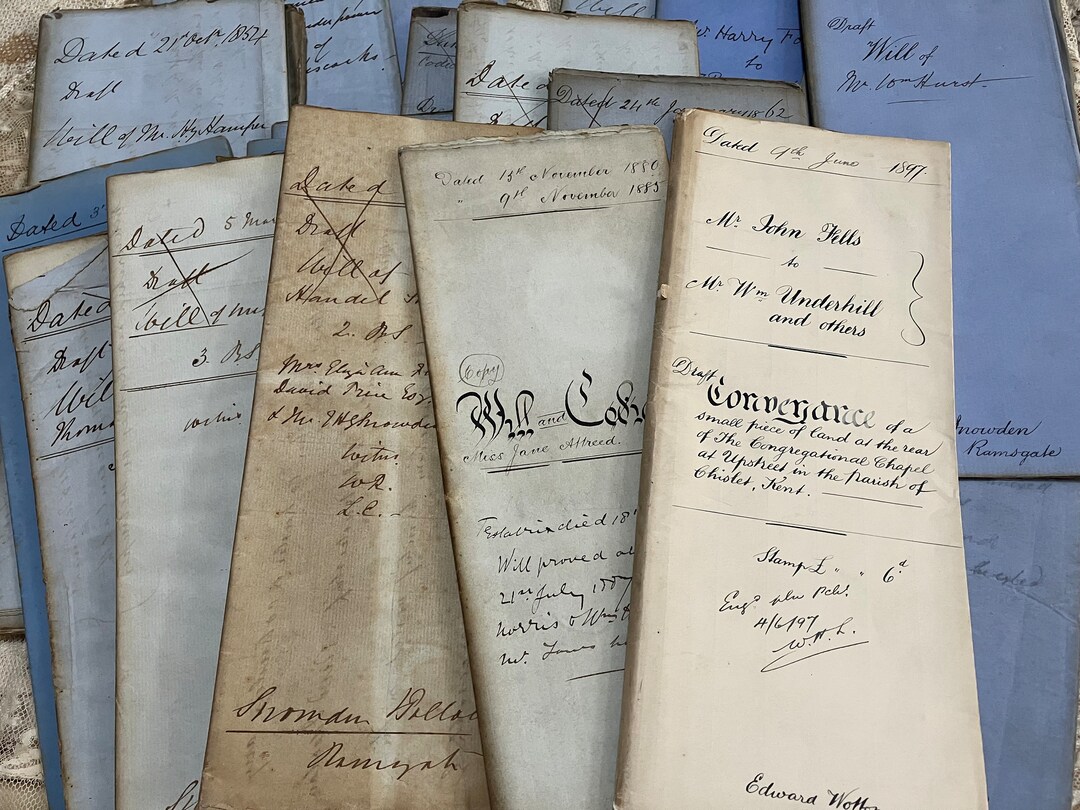 Dated 21st Octr. 1854
Draft
Will of Mr. Hy Hamper
of
Dated
Mr. Harry Fo
to
Draft
Will of
Mr. Wm Hurst
Dated 24th January 1862
Dated 3
Dated
Draft
Wil
Thoma
Dated 5 Mar
Draft
Will of
3. BS
within
Date of
Draft
Will of
Handel
2. BS
Mrs Eliza Ann
David Price Esq
& Mr
within
W2.
L.C.
Snowden
Ramsgate
Dated 13th November 1880
" 9th November 1885
Copy
Will and Codic
Miss Jane Attreed.
Testatrix died 18
Will proved at
21st July 1887
Norris & Wms
Dated 9th June 1897.
Mr. John Fells
to
Mr. Wm Underhill
and others
Draft
Conveyance of a
small piece of land at the rear
of The Congregational Chapel
at Upstreet in the Parish of
Chislet, Kent.
Stamp £ " " 6d
4/6/97
W.H.L.
Edward Wotto
Snowden
Ramsgate